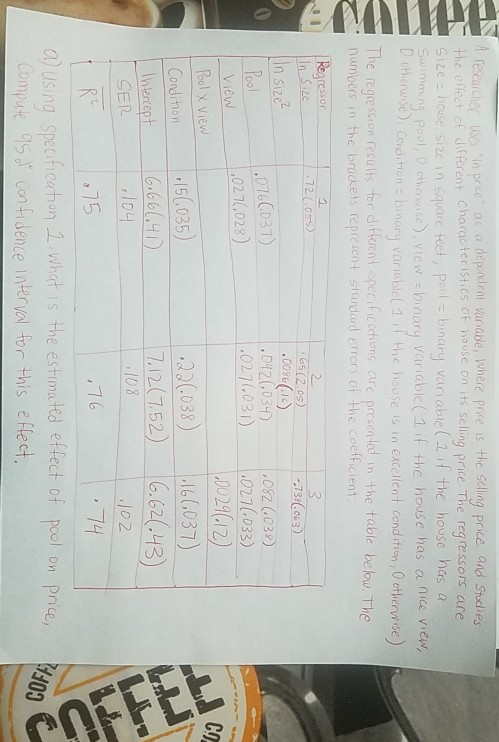 A researcher uses "lnprice" as a dependent variable, where price is the selling price and studies
the effect of different characteristics of house on its selling price. The regressors are
size = house size in square feet, pool = binary variable (1 if the house has a
swimming pool, 0 otherwise), view = binary variable (1 if the house has a nice view,
0 otherwise), Condition = binary variable (1 if the house is in excellent condition, 0 otherwise)
The regression results for different specifications are presented in the table below. The
number in the brackets represent standard errors of the coefficient
Regressor 1 2 3
ln size .72(.055) .65(2.05) .738(.063)
ln size² .0086(.16)
Pool .076(.037) .092(.034) .082(.038)
view .027(.028) .027(.031) .027(.033)
Pool x view .0034(.12)
Condition .15(.035) .22(.038) .16(.037)
Intercept 6.66(.41) 7.12(7.52) 6.62(.43)
SER .104 .108 .102
R² .75 .76 .74
a) Using specification 1 what is the estimated effect of pool on price,
Compute 95% confidence interval for this effect.
COFFEE
COFF